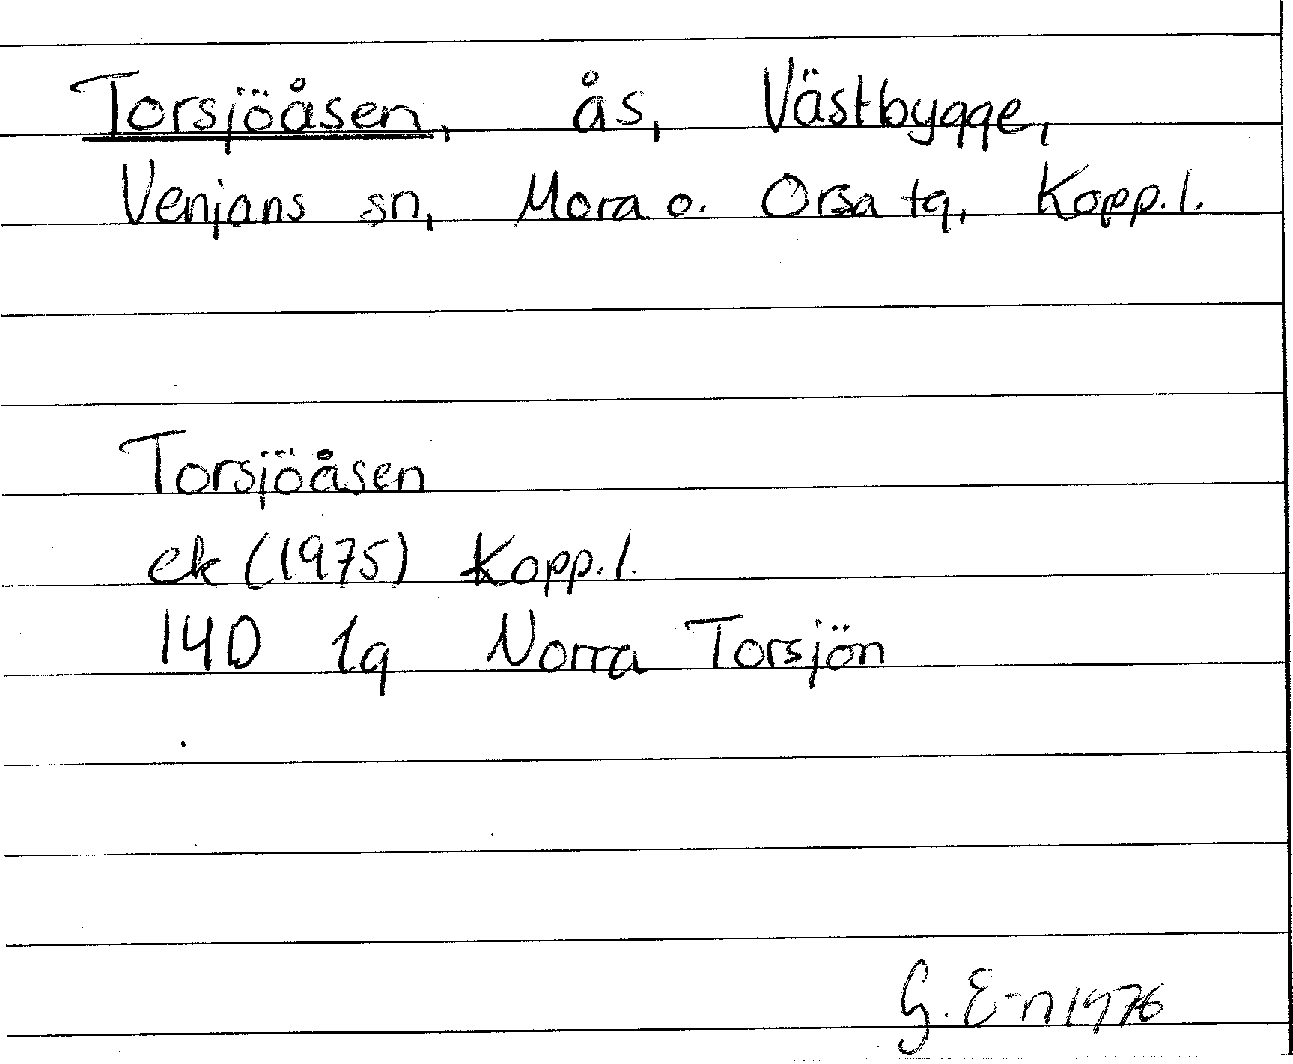 Torsjöåsen, ås, Västbygge,
Venjans sn, Mora o. Orsa tg, Kopp. l.
Torsjöåsen
ek (1975) Kopp. l.
14D 1g Norra Torsjön
G. E-n 1976